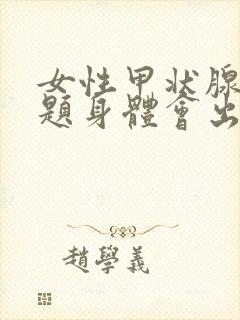 女性甲状腺
題身體會出
趙學義